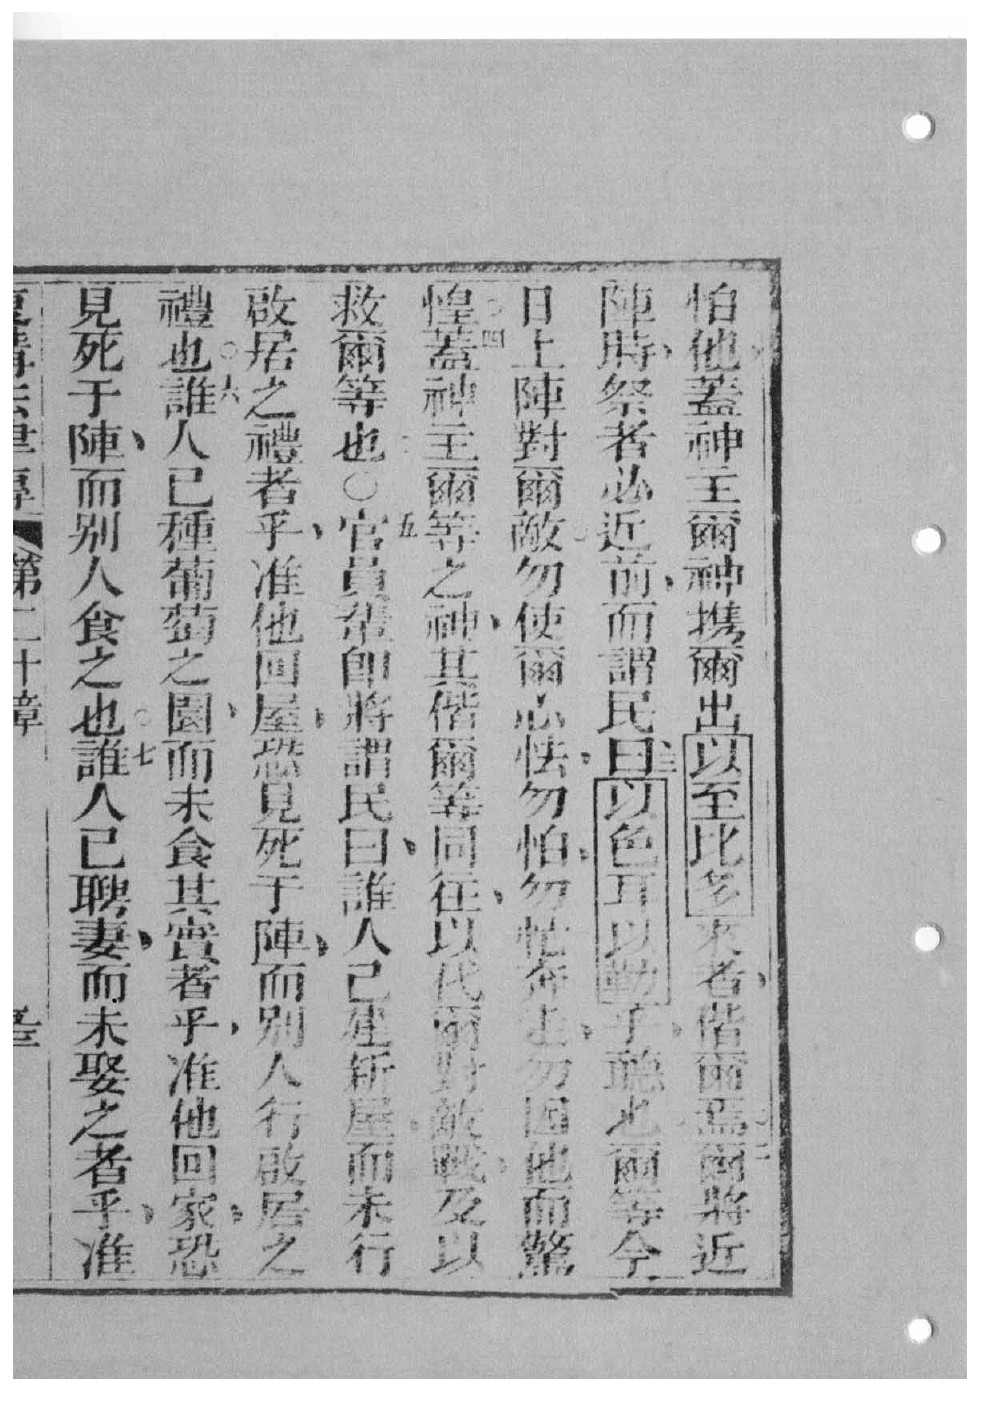 怕他蓋神主爾神携爾出以至比多來者偕爾焉○二爾將近
陣時祭者必近前而謂民曰○三以色耳以勒乎聽也爾等今
日上陣對爾敵勿使爾心怯勿怕勿忙奔走勿因他而驚
惶○四蓋神主爾等之神其偕爾等同往以代爾對敵戰及以
救爾等也○五官員輩卽將謂民曰誰人已建新屋而未行
啟居之禮者乎准他回屋恐見死于陣而別人行啟居之
禮也○六誰人已種葡萄之園而未食其實者乎准他回家恐
見死于陣而別人食之也○七誰人已聘妻而未娶之者乎准
第二十章